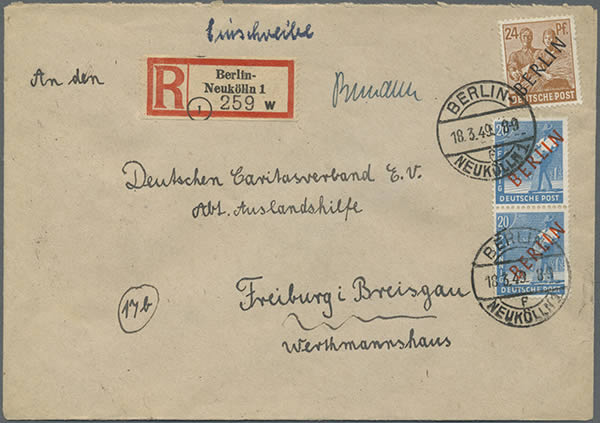 Einschreiben
An den
R
Berlin-
Neukölln 1
1 259 w
24 Pf.
BERLIN
DEUTSCHE POST
BERLIN-
18.3.49. 8-9
NEUKÖLLN 1
20
BERLIN
DEUTSCHE POST
20
BERLIN
DEUTSCHE POST
BERLIN
18.3.49. 8-9
F
NEUKÖLLN 1
Deutschen Caritasverband E.V.
Abt. Auslandshilfe
17b
Freiburg i Breisgau
Werthmannshaus